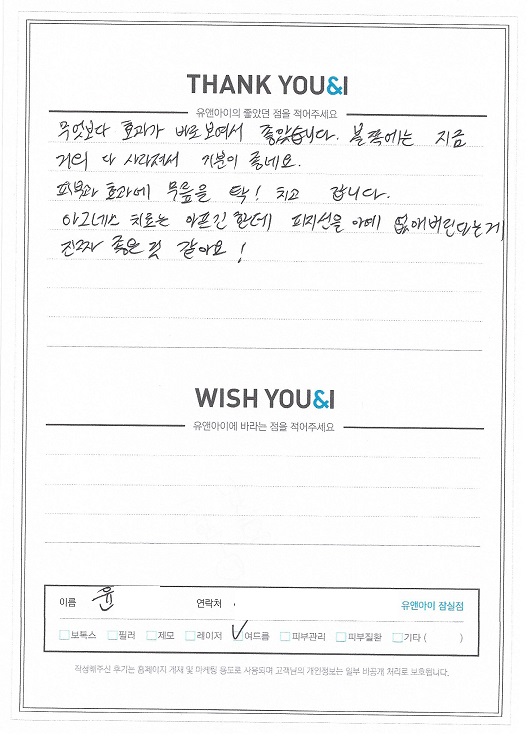 THANK YOU&I
유앤아이의 좋았던 점을 적어주세요
무엇보다 효과가 바로 보여서 좋았습니다. 볼쪽에는 지금
거의 다 사라져서 기분이 좋네요.
피부과 효과에 무릎을 탁! 치고 갑니다.
아그네스 치료는 아프긴 한데 피지선을 아예 없애버린다는게
진짜 좋은 것 같아요!
WISH YOU&I
유앤아이에 바라는 점을 적어주세요
이름 윤 연락처 . 유앤아이 잠실점
보톡스 필러 제모 레이저 여드름 피부관리 피부질환 기타 ( )
작성해주신 후기는 홈페이지 게재 및 마케팅 용도로 사용되며 고객님의 개인정보는 일부 비공개 처리로 보호됩니다.